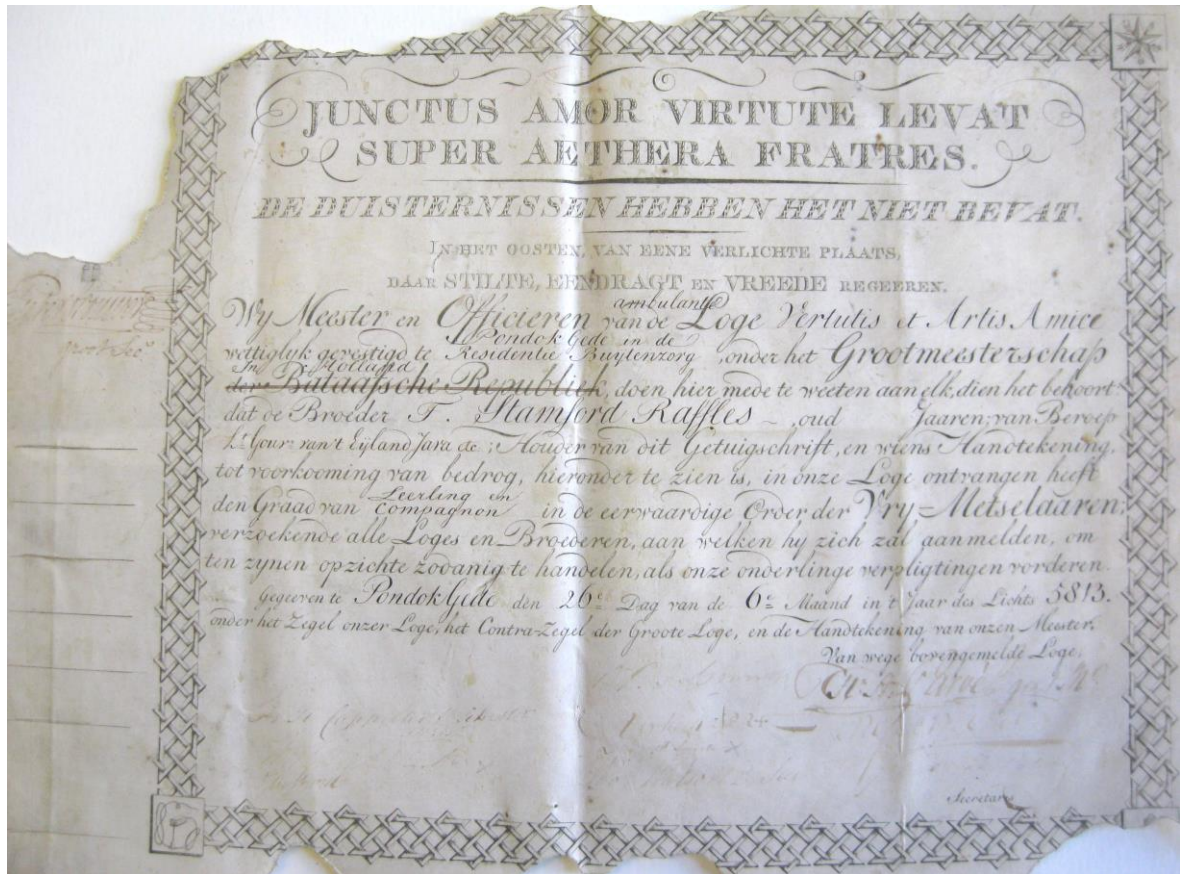 JUNCTUS AMOR VIRTUTE LEVAT
SUPER AETHERA FRATRES.
DE DUISTERNISSEN HEBBEN HET NIET BEVAT.
IN HET OOSTEN, VAN EENE VERLICHTE PLAATS,
DAAR STILTE, EENDRAGT EN VREEDE REGEEREN.
ambulante
Wy Meester en Officieren van de Loge Vertutis et Artis Amice
Pondok Gede in de
wettiglyk gevestigd te Residentie Buytenzorg, onder het Grootmeesterschap
In Holland
der Bataafsche Republiek, doen hier mede te weeten aan elk, dien het behoort
dat de Broeder T. Stamford Raffles - oud Jaaren; van Beroep
Lt Gour: van't Eyland Java &c; Houder van dit Getuigschrift, en wiens Handtekening,
tot voorkooming van bedrog, hieronder te zien is, in onze Loge ontvangen heeft
Leerling en
den Graad van Compagnon in de eerwaardige Order der Vry-Metselaaren;
verzoekende alle Loges en Broederen, aan welken hy zich zal aanmelden, om
ten zynen opzichte zodanig te handelen, als onze onderlinge verpligtingen vorderen.
Gegeeven te Pondok Gede den 26e Dag van de 6e Maand in 't Jaar des Lichts 5813.
onder het Zegel onzer Loge, het Contra-Zegel der Groote Loge, en de Handtekening van onzen Meester.
Van wege bovengemelde Loge.
Secretaris